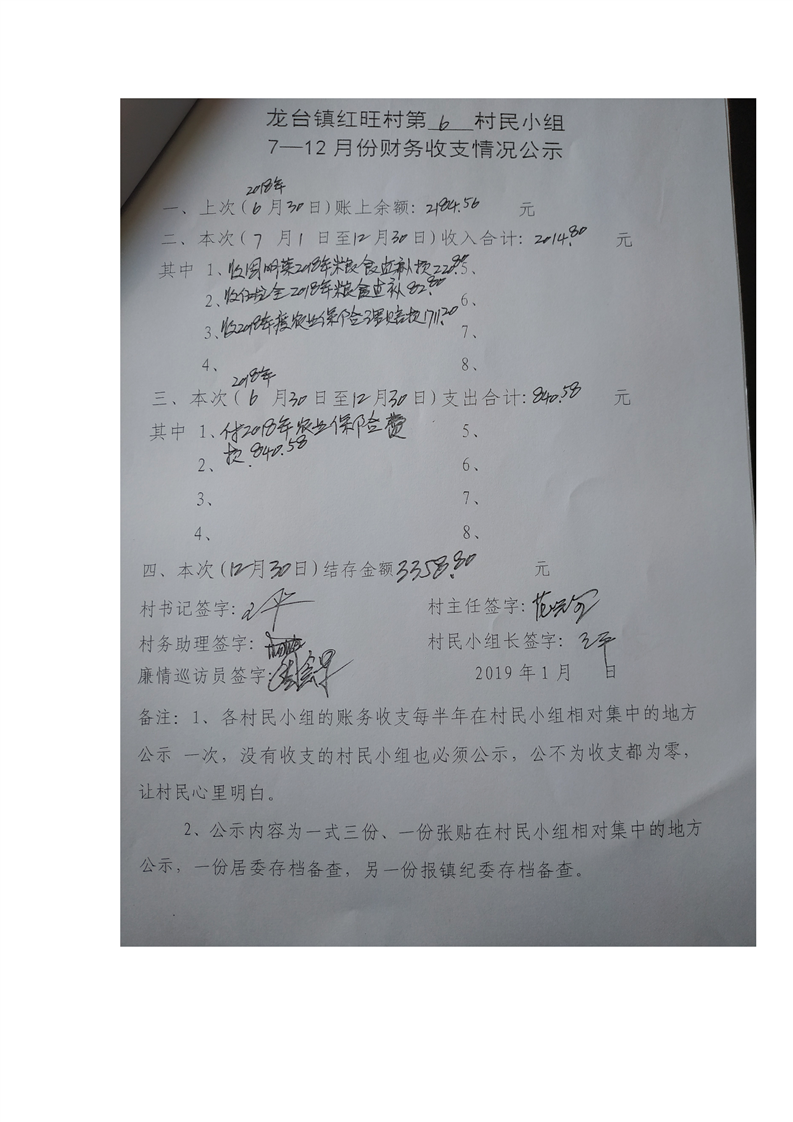 龙台镇红旺村第 6 村民小组
7—12月份财务收支情况公示
2018年
一、上次(6月30日)账上余额:2184.56 元
二、本次(7月1日至12月30日)收入合计:2014.80 元
其中 1、收周明菜2018年粮食直补款220.80 5、
2、收伍定全2018年粮食直补82.80 6、
3、收2018年度农业保险理赔款1711.20 7、
4、 8、
2018年
三、本次(6月30日至12月30日)支出合计:840.58 元
其中 1、付2018年农业保险费 5、
2、款840.58 6、
3、 7、
4、 8、
四、本次(12月30日)结存金额3358.80 元
村书记签字:王平 村主任签字:
村务助理签字: 村民小组长签字:王平
廉情巡访员签字: 2019年1月 日
备注:1、各村民小组的账务收支每半年在村民小组相对集中的地方
公示 一次,没有收支的村民小组也必须公示,公不为收支都为零,
让村民心里明白。
2、公示内容为一式三份、一份张贴在村民小组相对集中的地方
公示,一份居委存档备查,另一份报镇纪委存档备查。